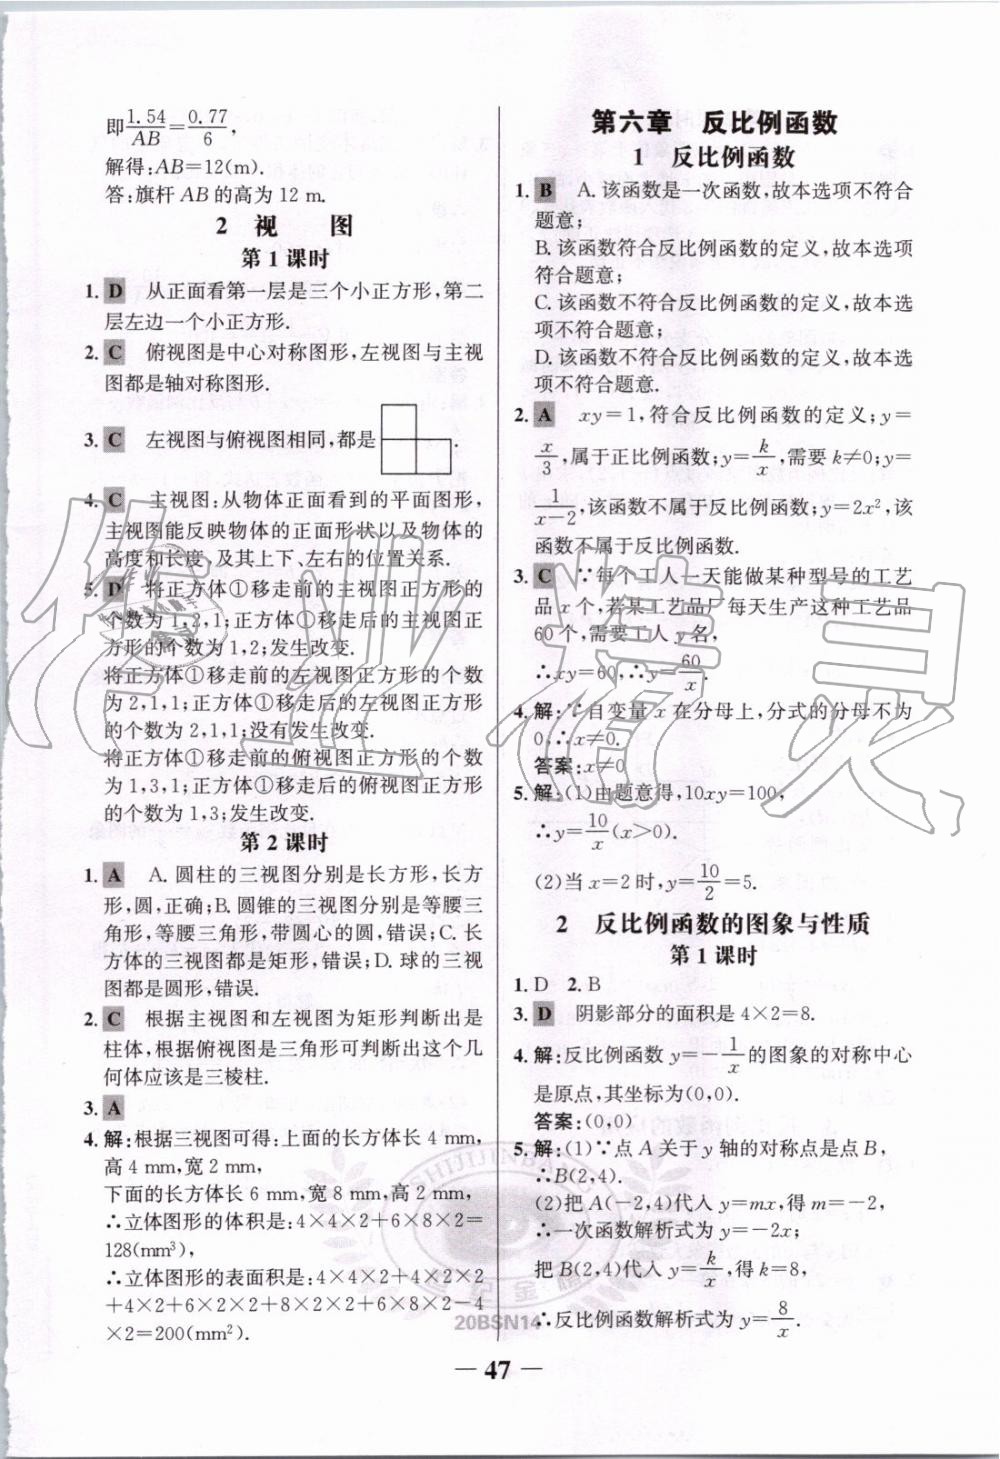 即1.54/AB=0.77/6,
解得:AB=12(m).
答:旗杆 AB 的高为 12 m.
2 视 图
第 1 课时
1. D 从正面看第一层是三个小正方形,第二
层左边一个小正方形.
2. C 俯视图是中心对称图形,左视图与主视
图都是轴对称图形.
3. C 左视图与俯视图相同,都是 .
4. C 主视图:从物体正面看到的平面图形,
主视图能反映物体的正面形状以及物体的
高度和长度,及其上下、左右的位置关系.
5. D 将正方体①移走前的主视图正方形的
个数为 1,2,1;正方体①移走后的主视图正
方形的个数为 1,2;发生改变.
将正方体①移走前的左视图正方形的个数
为 2,1,1;正方体①移走后的左视图正方形
的个数为 2,1,1;没有发生改变.
将正方体①移走前的俯视图正方形的个数
为 1,3,1;正方体①移走后的俯视图正方形
的个数为 1,3;发生改变.
第 2 课时
1. A A. 圆柱的三视图分别是长方形,长方
形,圆,正确;B. 圆锥的三视图分别是等腰三
角形,等腰三角形,带圆心的圆,错误;C. 长
方体的三视图都是矩形,错误;D. 球的三视
图都是圆形,错误.
2. C 根据主视图和左视图为矩形判断出是
柱体,根据俯视图是三角形可判断出这个几
何体应该是三棱柱.
3. A
4. 解:根据三视图可得:上面的长方体长 4 mm,
高 4 mm,宽 2 mm,
下面的长方体长 6 mm,宽 8 mm,高 2 mm,
∴立体图形的体积是:4×4×2+6×8×2=
128(mm³),
∴立体图形的表面积是:4×4×2+4×2×2
+4×2+6×2×2+8×2×2+6×8×2-4
×2=200(mm²).
第六章 反比例函数
1 反比例函数
1. B A. 该函数是一次函数,故本选项不符合
题意;
B. 该函数符合反比例函数的定义,故本选项
符合题意;
C. 该函数不符合反比例函数的定义,故本选
项不符合题意;
D. 该函数不符合反比例函数的定义,故本选
项不符合题意.
2. A xy=1,符合反比例函数的定义;y=
x/3,属于正比例函数;y=k/x,需要 k≠0;y=
1/(x-2),该函数不属于反比例函数;y=2x²,该
函数不属于反比例函数.
3. C ∵每个工人一天能做某种型号的工艺
品 x 个,若某工艺品厂每天生产这种工艺品
60 个,需要工人 y 名,
∴xy=60,∴y=60/x.
4. 解:∵自变量 x 在分母上,分式的分母不为
0,∴x≠0.
答案:x≠0
5. 解:(1)由题意得,10xy=100,
∴y=10/x(x>0).
(2)当 x=2 时,y=10/2=5.
2 反比例函数的图象与性质
第 1 课时
1. D 2. B
3. D 阴影部分的面积是 4×2=8.
4. 解:反比例函数 y=-1/x的图象的对称中心
是原点,其坐标为(0,0).
答案:(0,0)
5. 解:(1)∵点 A 关于 y 轴的对称点是点 B,
∴B(2,4).
(2)把 A(-2,4)代人 y=mx,得 m=-2,
∴一次函数解析式为 y=-2x;
把 B(2,4)代人 y=k/x,得 k=8,
∴反比例函数解析式为 y=8/x.
作业精灵
SHIJIJINBANG
世纪金榜
20BSN14
— 47 —